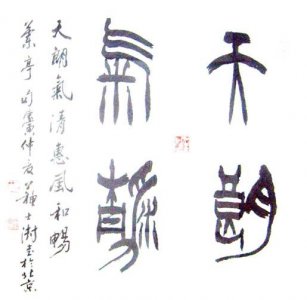 天朗
氣清
天朗氣清惠風和暢
蘭亭句 仲夏蘇士澍書於北京